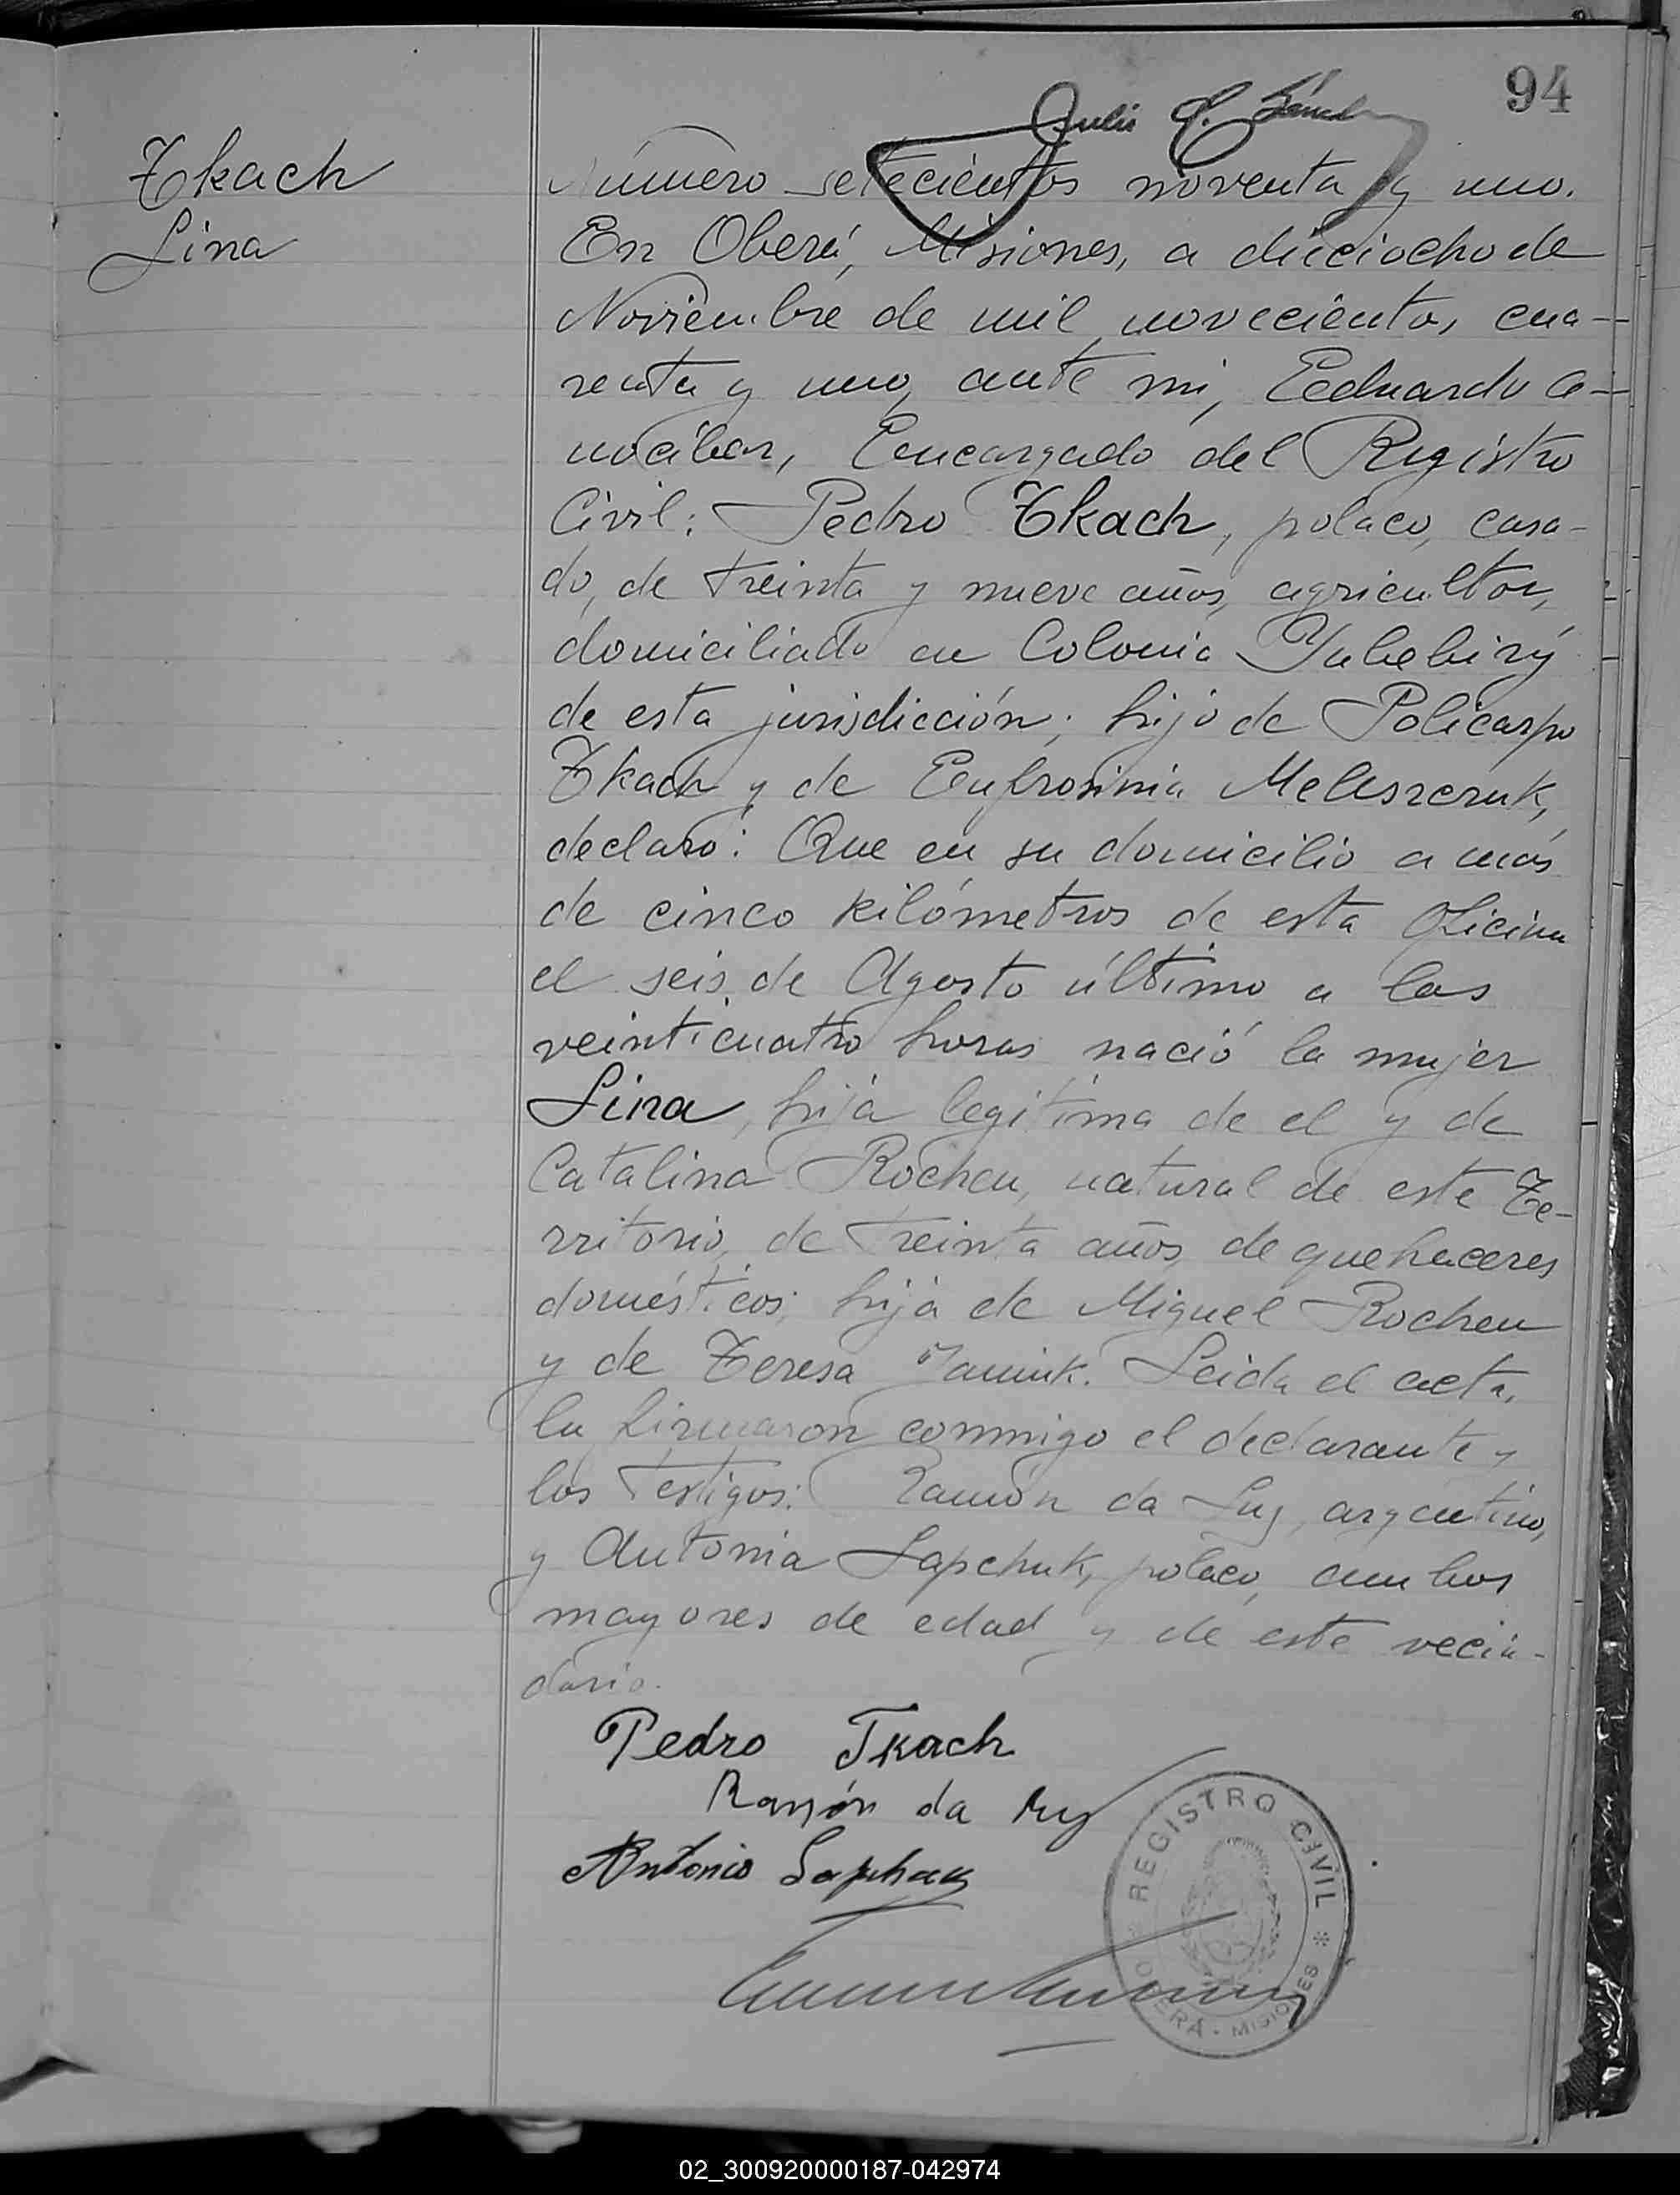 94
Julio A. Sánch
Tkach
Lina
Número setecientos noventa y uno.
En Oberá, Misiones, a dieciocho de
Noviembre de mil novecientos cua-
renta y uno, ante mi, Eduardo A-
mocibar, Encargado del Registro
Civil: Pedro Tkach, polaco, casa-
do, de treinta y nueve años, agricultor,
domiciliado en Colonia Yabebiry
de esta jurisdicción; hijo de Policarpo
Tkach y de Eufrosinia Meliszczuk,
declaró: Que en su domicilio a más
de cinco kilómetros de esta Oficina
el seis de Agosto último a las
veinticuatro horas nació la mujer
Lina, hija legítima de el y de
Catalina Rocheu, natural de este Te-
rritorio, de treinta años, de quehaceres
domésticos; hija de Miguel Rocheu
y de Teresa. Leida el acta,
la firmaron conmigo el declarante y
los testigos: Ramón da Luz, argentino,
y Antonia Lapchuk, polaco, ambos
mayores de edad y de este vecin-
dario.
Pedro Tkach
Ramón da Luz
Antonio
REGISTRO CIVIL
* OBERÁ - MISIONES *
02_300920000187-042974